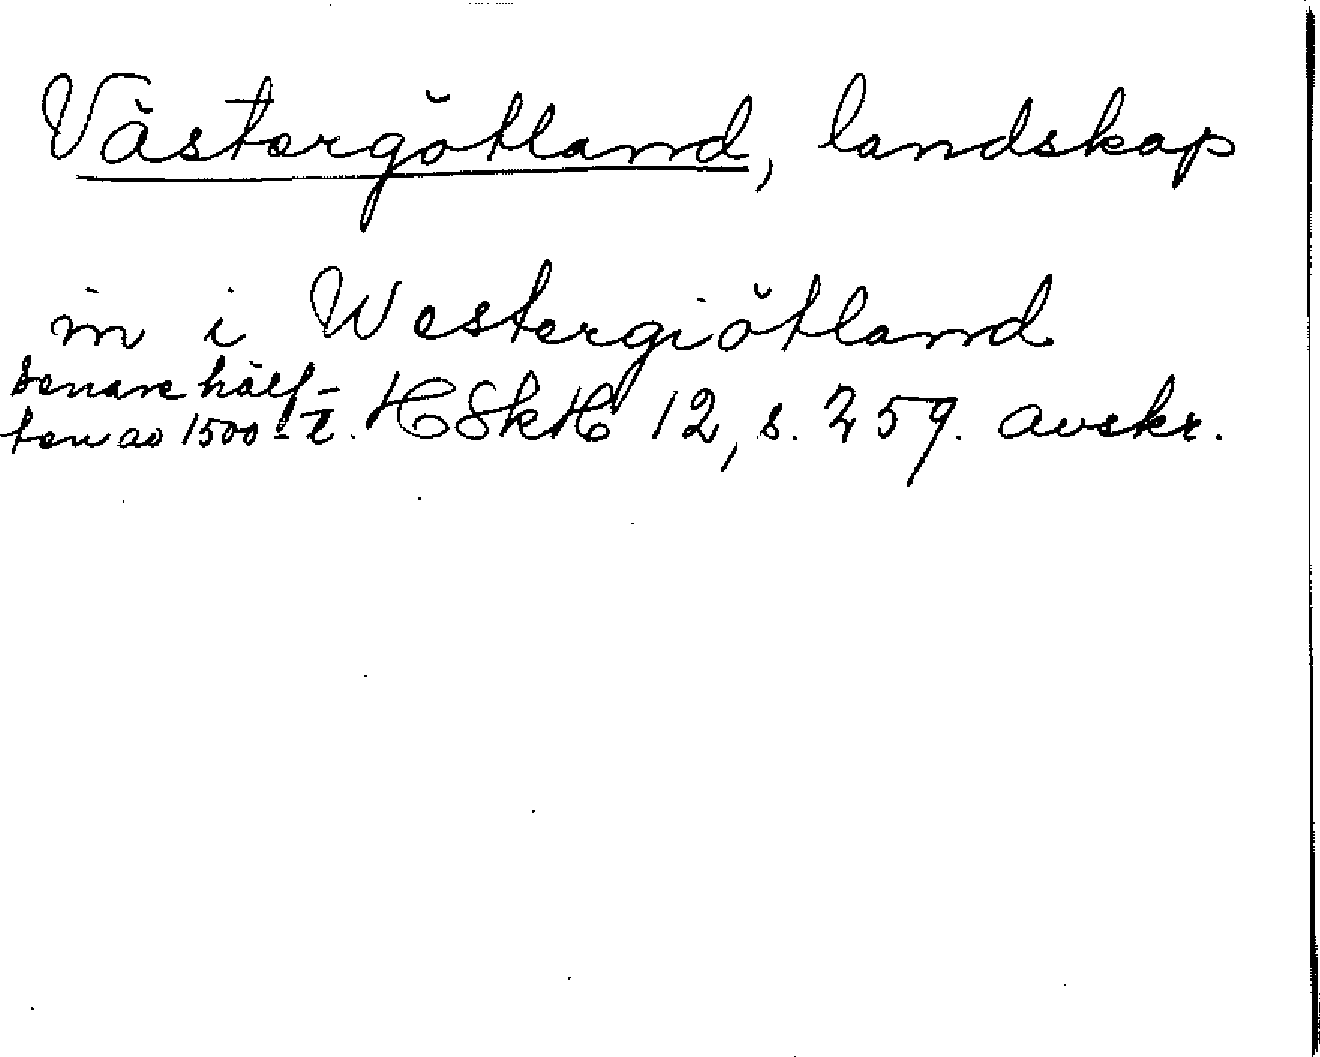 Västergötland, landskap
in i Westergiötland
senare hälf-
ten av 1500-t. HSkH 12, s. 259. avskr.